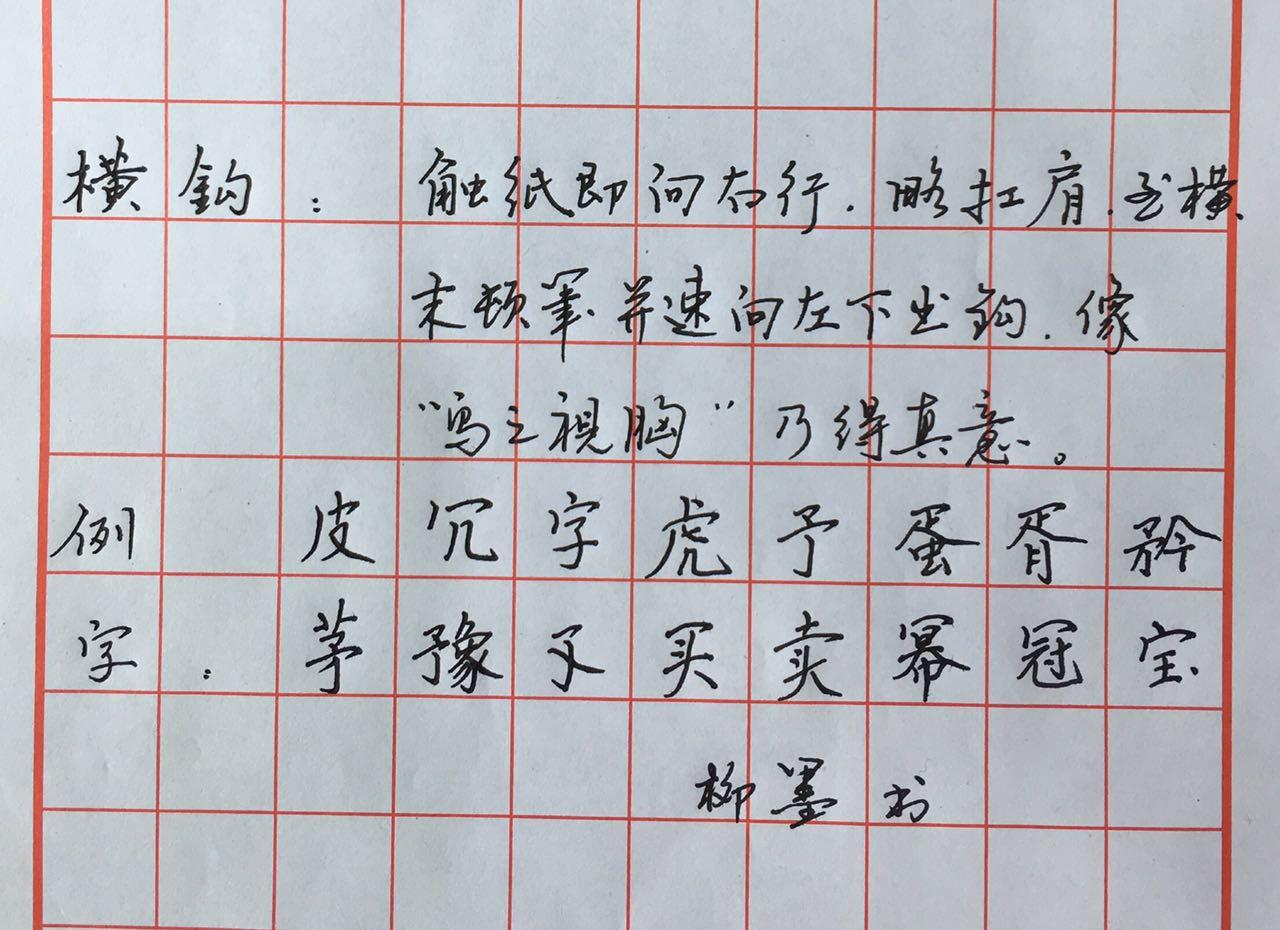 横鈎：触纸即向右行.略扛肩.至横
末顿笔.并速向左下出鈎.像
“鸟之視胸”乃得真意。
例 皮冗字虎予蛋胥矜
字：茅豫又买卖幂冠宝
柳墨书